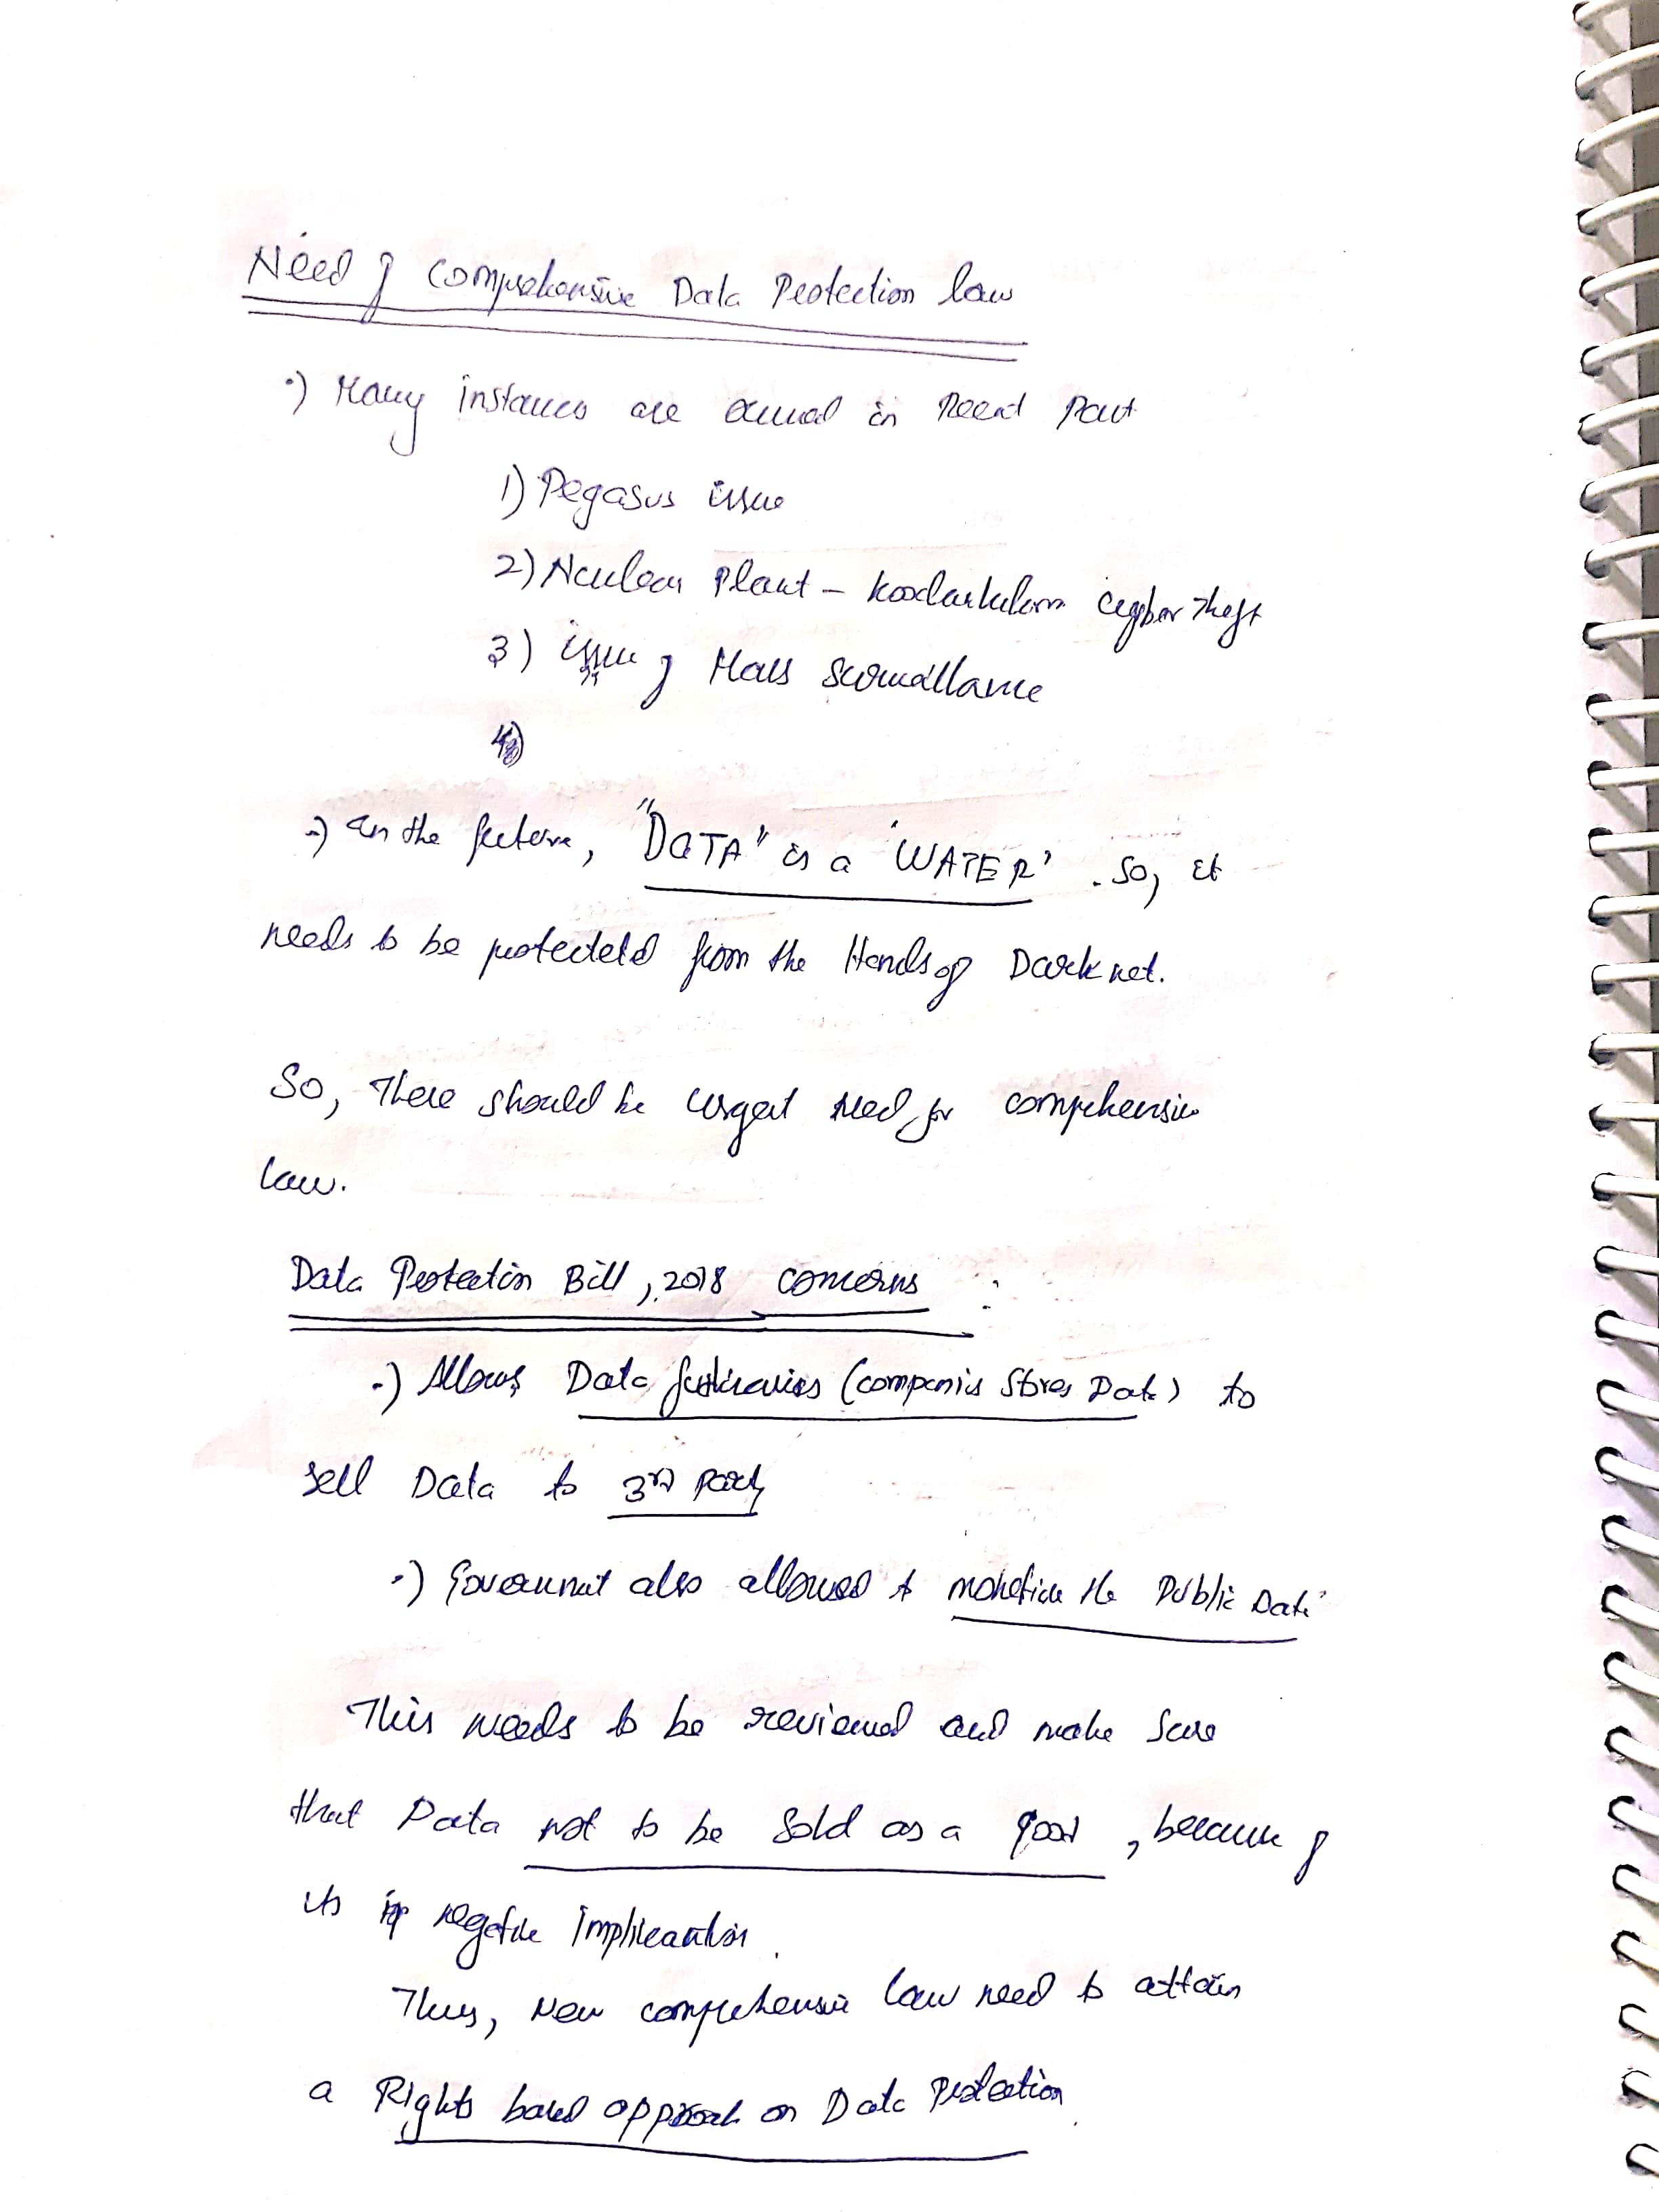 Need of Comprehensive Data Protection law
•) Many instances are occured in Recent Past
1) Pegasus issue
2) Nculear Plant - Koodankulam Cyber theft
3) issue of Mass Surveillance
4)
•) In the future, "DATA" is a 'WATER'. So, it
needs to be protecteted from the Hands of Dark net.
So, There should be urgent need for comprehensive
law.
Data Protection Bill, 2018 concerns :
•) Allows Data fiduciaries (companies Stores Data) to
sell Data to 3rd party
•) Government also allowed to monetize the Public Data
This needs to be reviewed and make sure
that Data not to be Sold as a good, because of
its negative implication.
Thus, New comprehensive law need to attain
a Rights based approach on Data Protection.